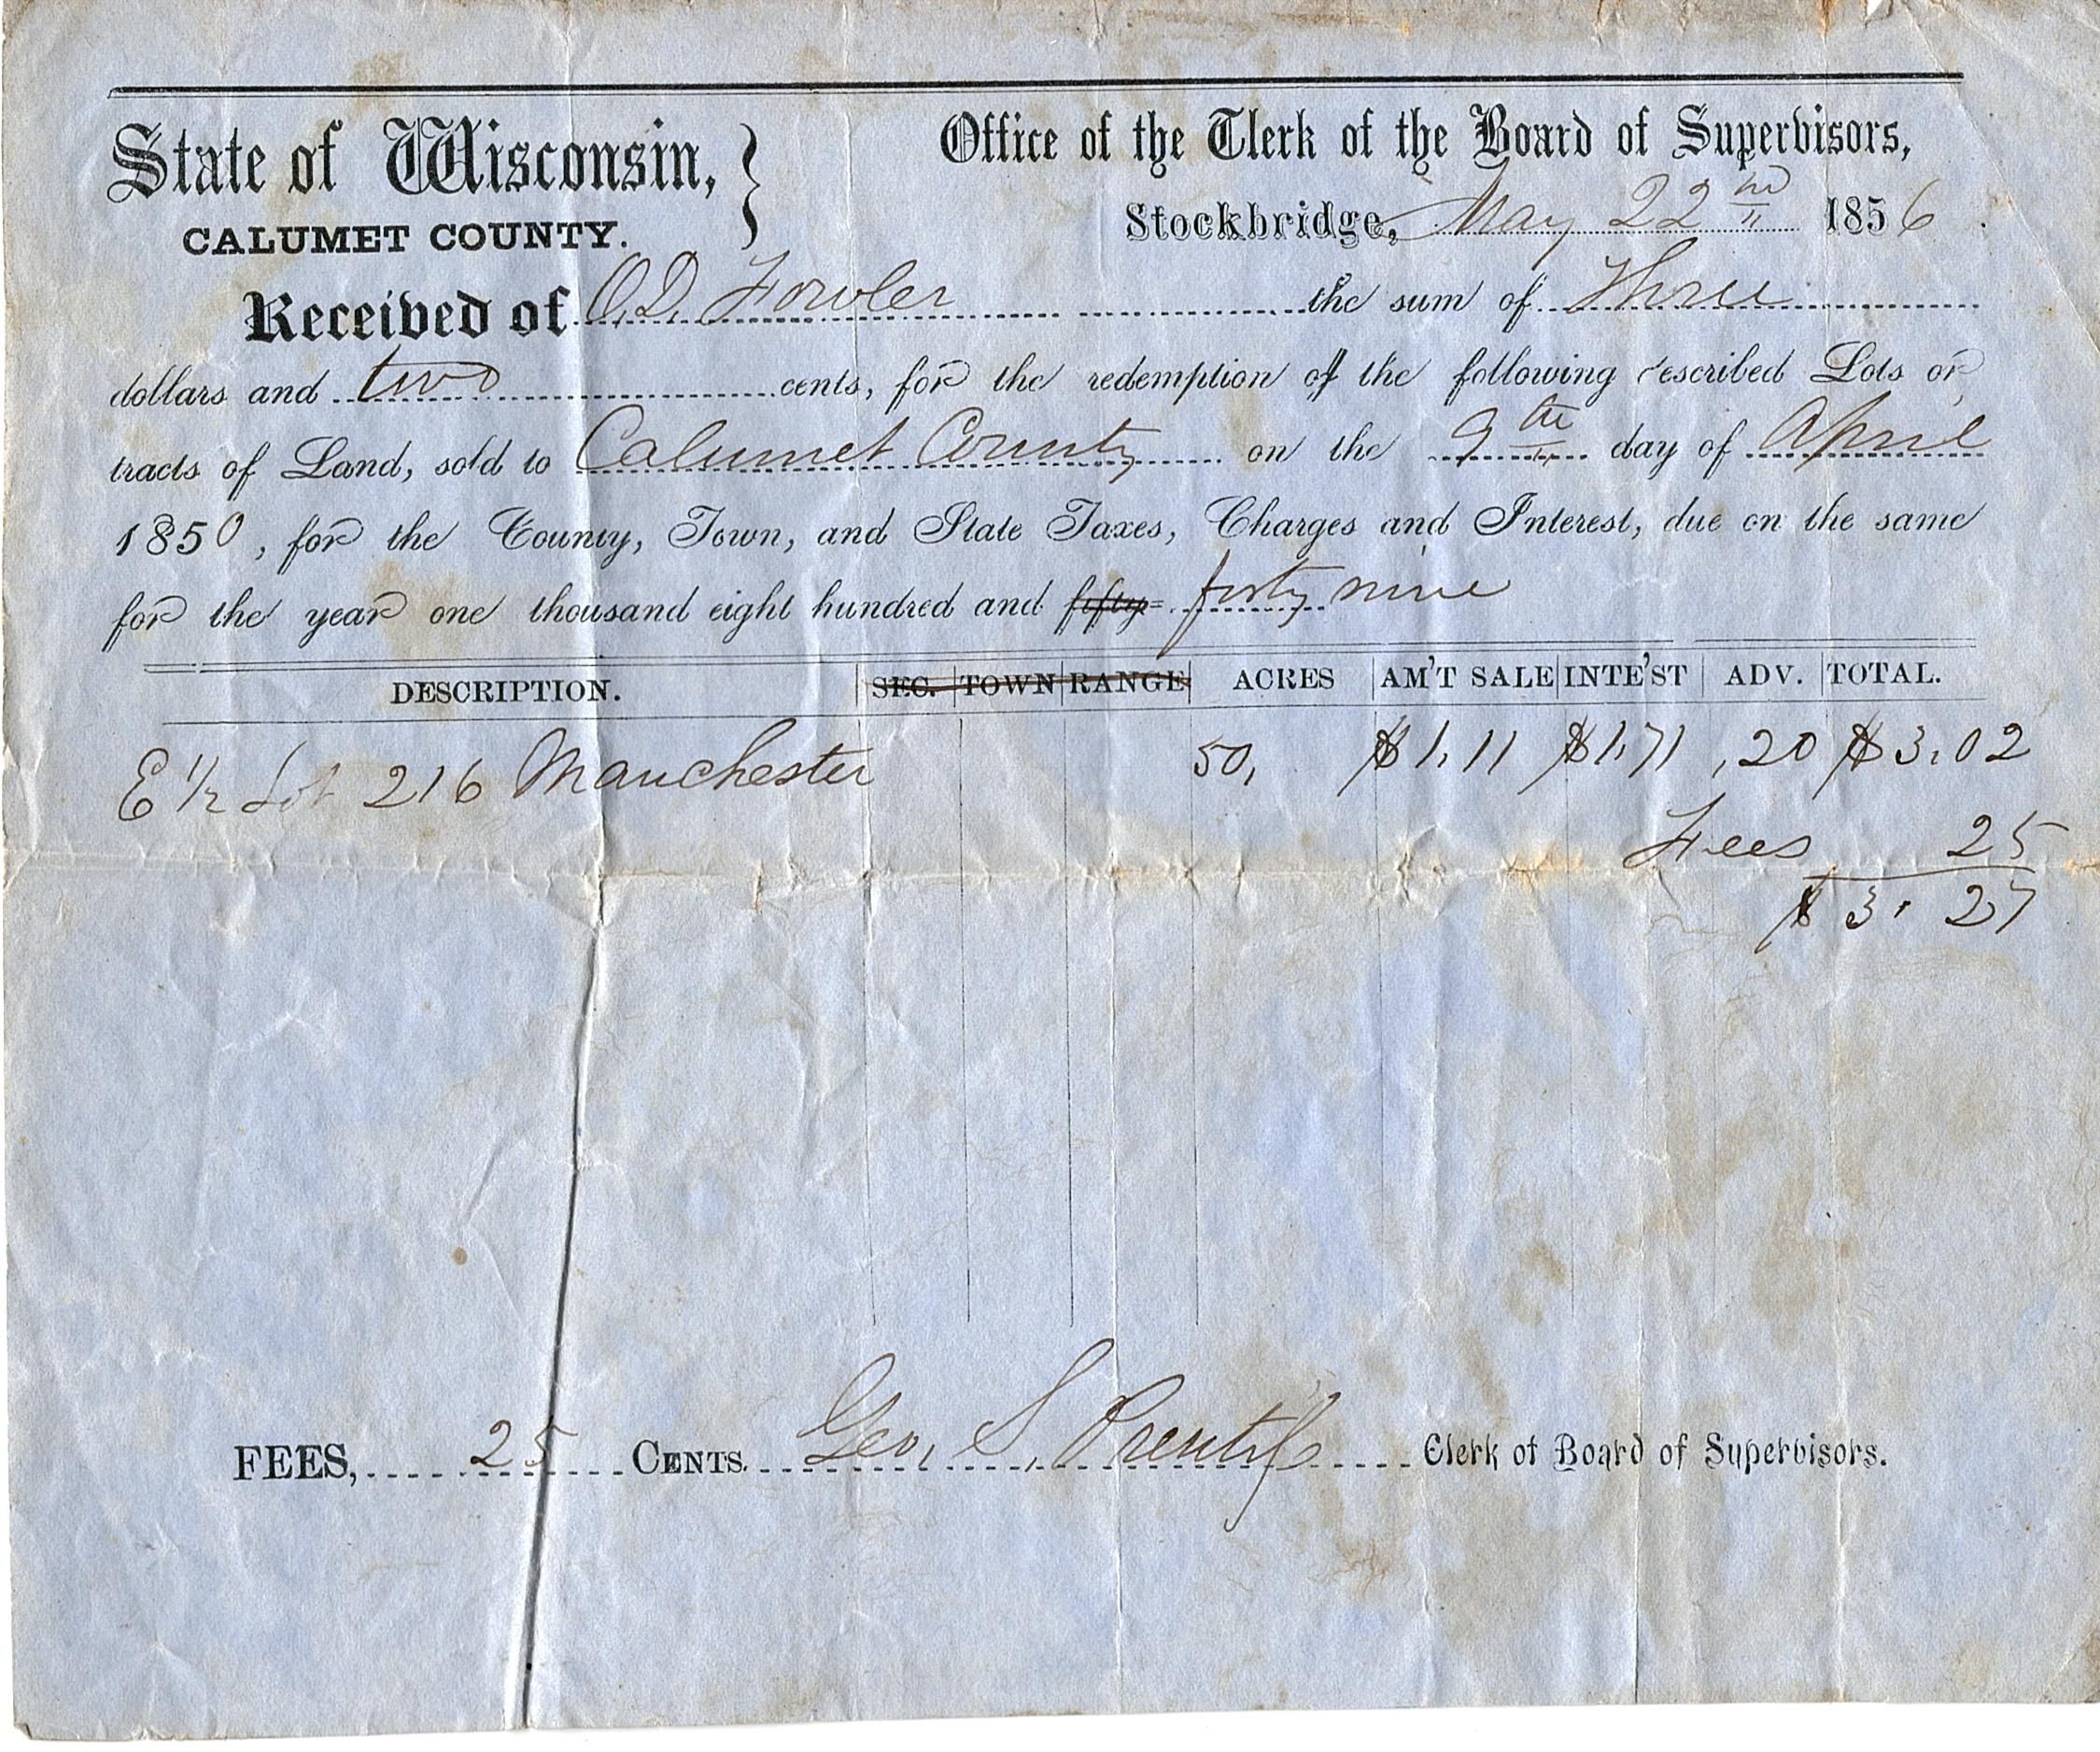 State of Wisconsin, } Office of the Clerk of the Board of Supervisors,
CALUMET COUNTY. Stockbridge, May 22nd 1856.
Received of O. D. Fowler the sum of Three
dollars and two cents, for the redemption of the following described Lots or
tracts of Land, sold to Calumet County on the 9th day of April
1850, for the County, Town, and State Taxes, Charges and Interest, due on the same
for the year one thousand eight hundred and fifty- forty nine
DESCRIPTION. SEC. TOWN RANGE ACRES AM'T SALE INTE'ST ADV. TOTAL.
E 1/2 Lot 216 Manchester 50, $1.11 $1.71 ,20 $3.02
Fees 25
$3.27
FEES, 25 CENTS. Geo. S. Prentiss Clerk of Board of Supervisors.